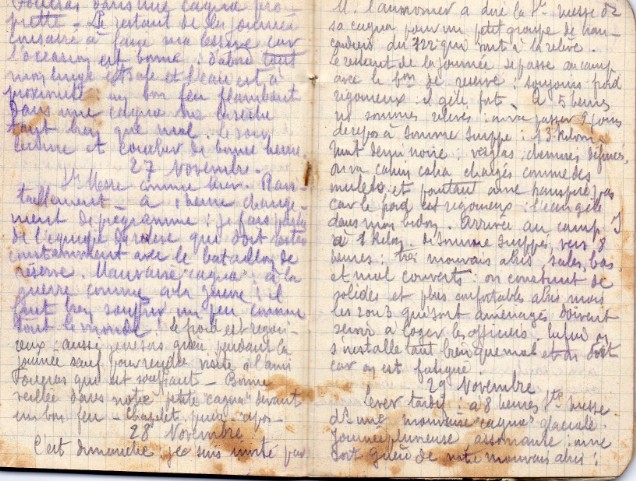 Fougeras dans une cagna pro-
prette - Le restant de la journée
consacré à faire ma lessive car
l'occasion est bonne : d'abord tout
mon linge est sale et l'eau est à
proximité un bon feu flambant
dans une cagna me le sèche
tant bien que mal. Le soir
lecture et coucher de bonne heure.
27 Novembre.
Ste Messe comme hier. Ravi-
taillement - à 1 heure change-
ment de programme : je fais partie
de l'équipe de réserve qui doit rester
constamment avec le bataillon de
réserve. Mauvaise "cagna" : à la
guerre comme à la guerre : il
faut bien souffrir un peu comme
tout le monde ! le froid est rigou-
reux ; aussi je ne sors guère pendant la
journée sauf pour rendre visite à l'ami
Fougeras qui est souffrant - Bonne
veillée dans notre petite "cagna" devant
un bon feu - chapelet, prière
28 Novembre
C'est dimanche je suis invité par
M. l'aumonier à dire la Ste messe ds
sa cagna pour un petit groupe de bran-
cardiers du 122 qui vont à la relève.
Le restant de la journée se passe au camp
avec le bon de réserve : toujours froid
rigoureux il gèle fort. A 5 heures
ns sommes relevés : ns allons passer 2 jours
de repos à Somme Suippe ; 13 kilom.
Nuit demi noire ; verglas, chemins défoncés,
on va cahin caha chargés comme des
mulets et pourtant on ne transpire pas
car le froid est rigoureux : l'eau gèle
dans mon bidon. Arrivée au camp J
à 1 kilom. de Somme Suippe, vers 8
heures ; très mauvais abris sales, bas
et mal couverts : on construit de
solides et plus confortables abris mais
les 2 ou 3 qui sont aménagés doivent
servir à loger les officiers. Enfin on
s'installe tant bien que mal et on dort
car on est fatigué.
29 Novembre
Lever tardif : à 8 heures Ste messe
ds une mauvaise "cagna" glaciale.
Journée pluvieuse, assommante : on ne
sort guère de notre mauvais abri ;